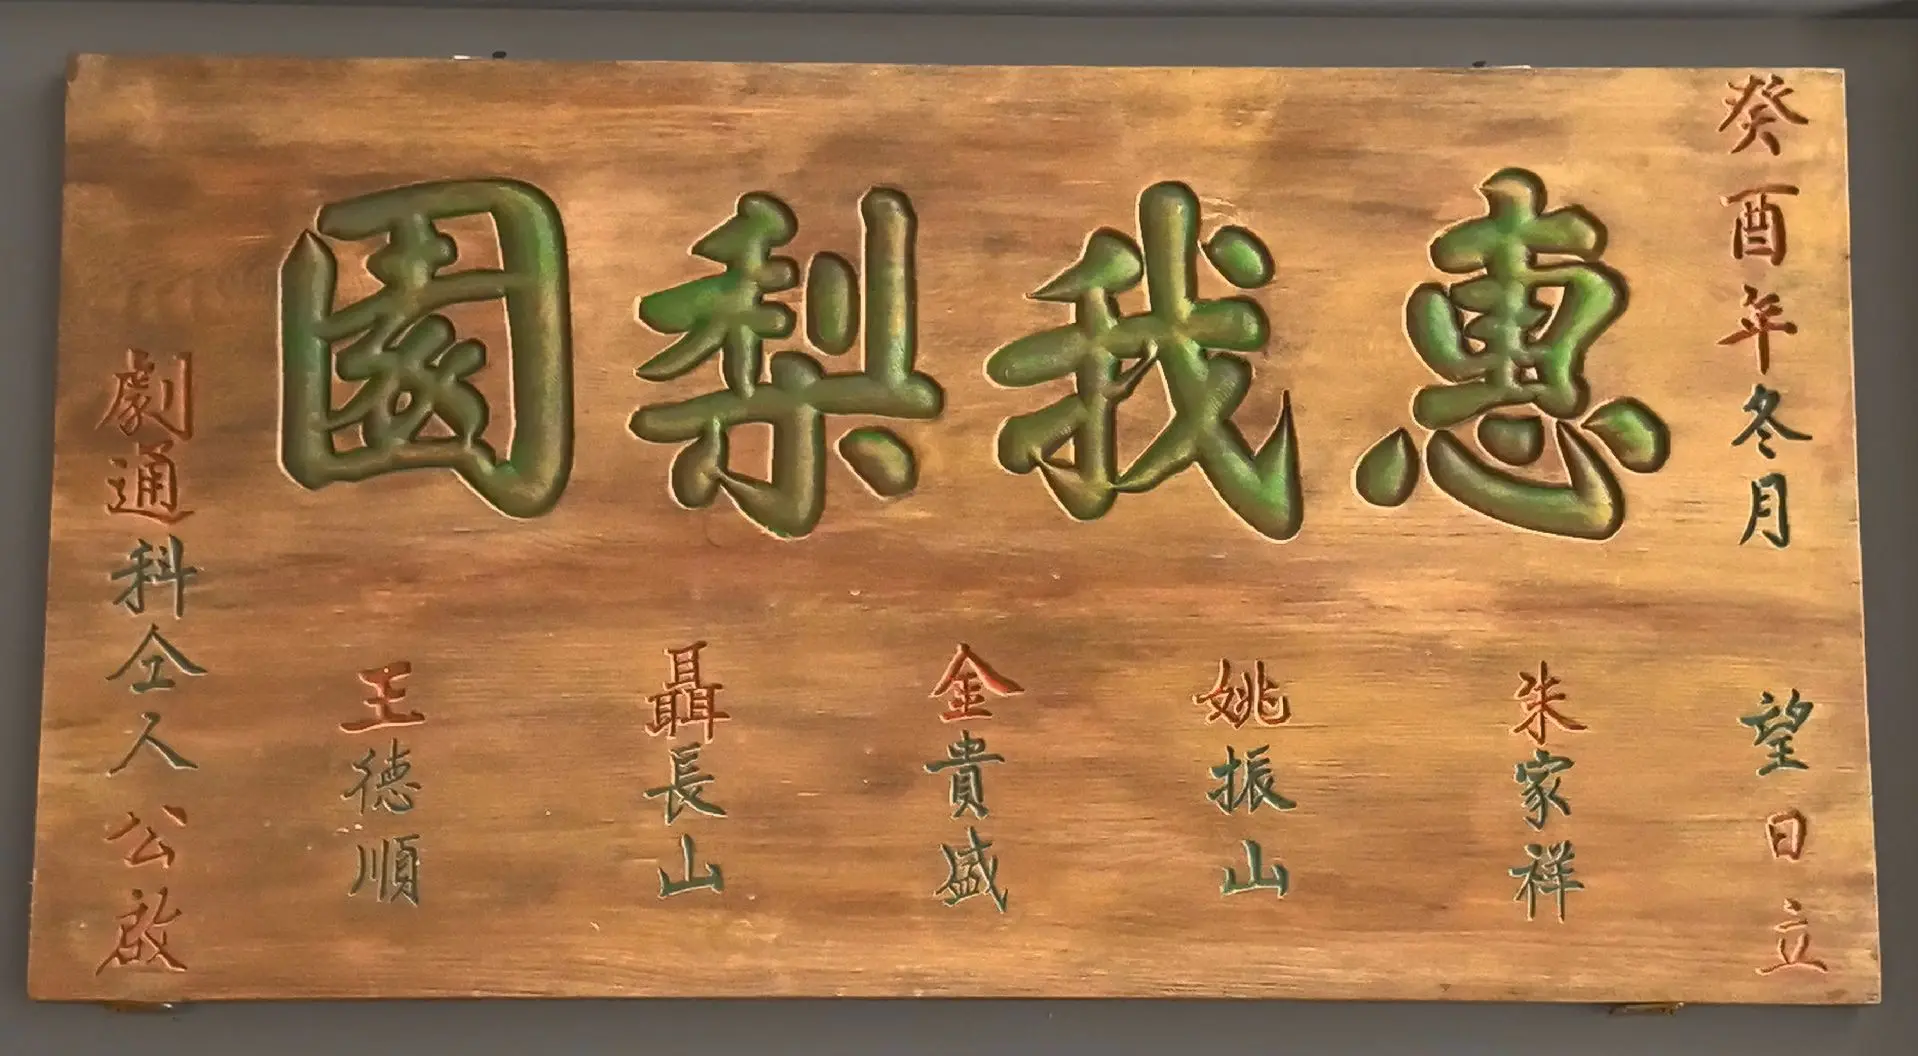 癸酉年冬月 望日立
惠我梨園
朱家祥
姚振山
金貴盛
聶長山
王德順
劇通科仝人公啟